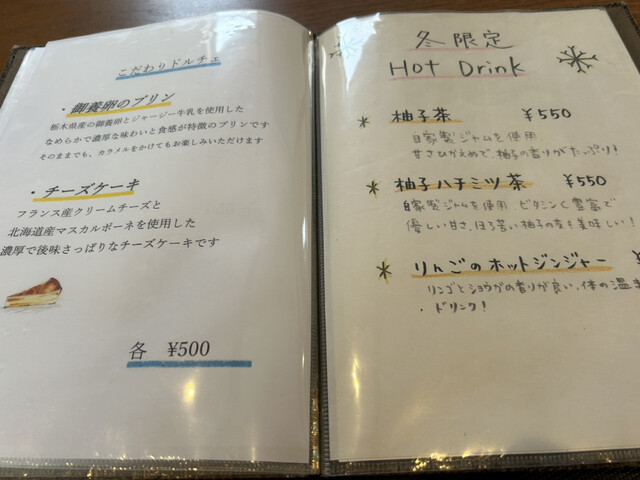 こだわりドルチェ
・御養卵のプリン
栃木県産の御養卵とジャージー牛乳を使用した
なめらかで濃厚な味わいと食感が特徴のプリンです
そのままでも、カラメルをかけてもお楽しみいただけます
・チーズケーキ
フランス産クリームチーズと
北海道産マスカルポーネを使用した
濃厚で後味さっぱりなチーズケーキです
各 ¥500
冬限定
Hot Drink
柚子茶 ¥550
自家製ジャムを使用
甘さひかえめで、柚子の香りがたっぷり!
柚子ハチミツ茶 ¥550
自家製ジャムを使用 ビタミンC豊富で
優しい甘さ、ほろ苦い柚子の皮も美味しい!
りんごのホットジンジャー ¥
リンゴとショウガの香りが良い、体の温ま
・ドリンク!